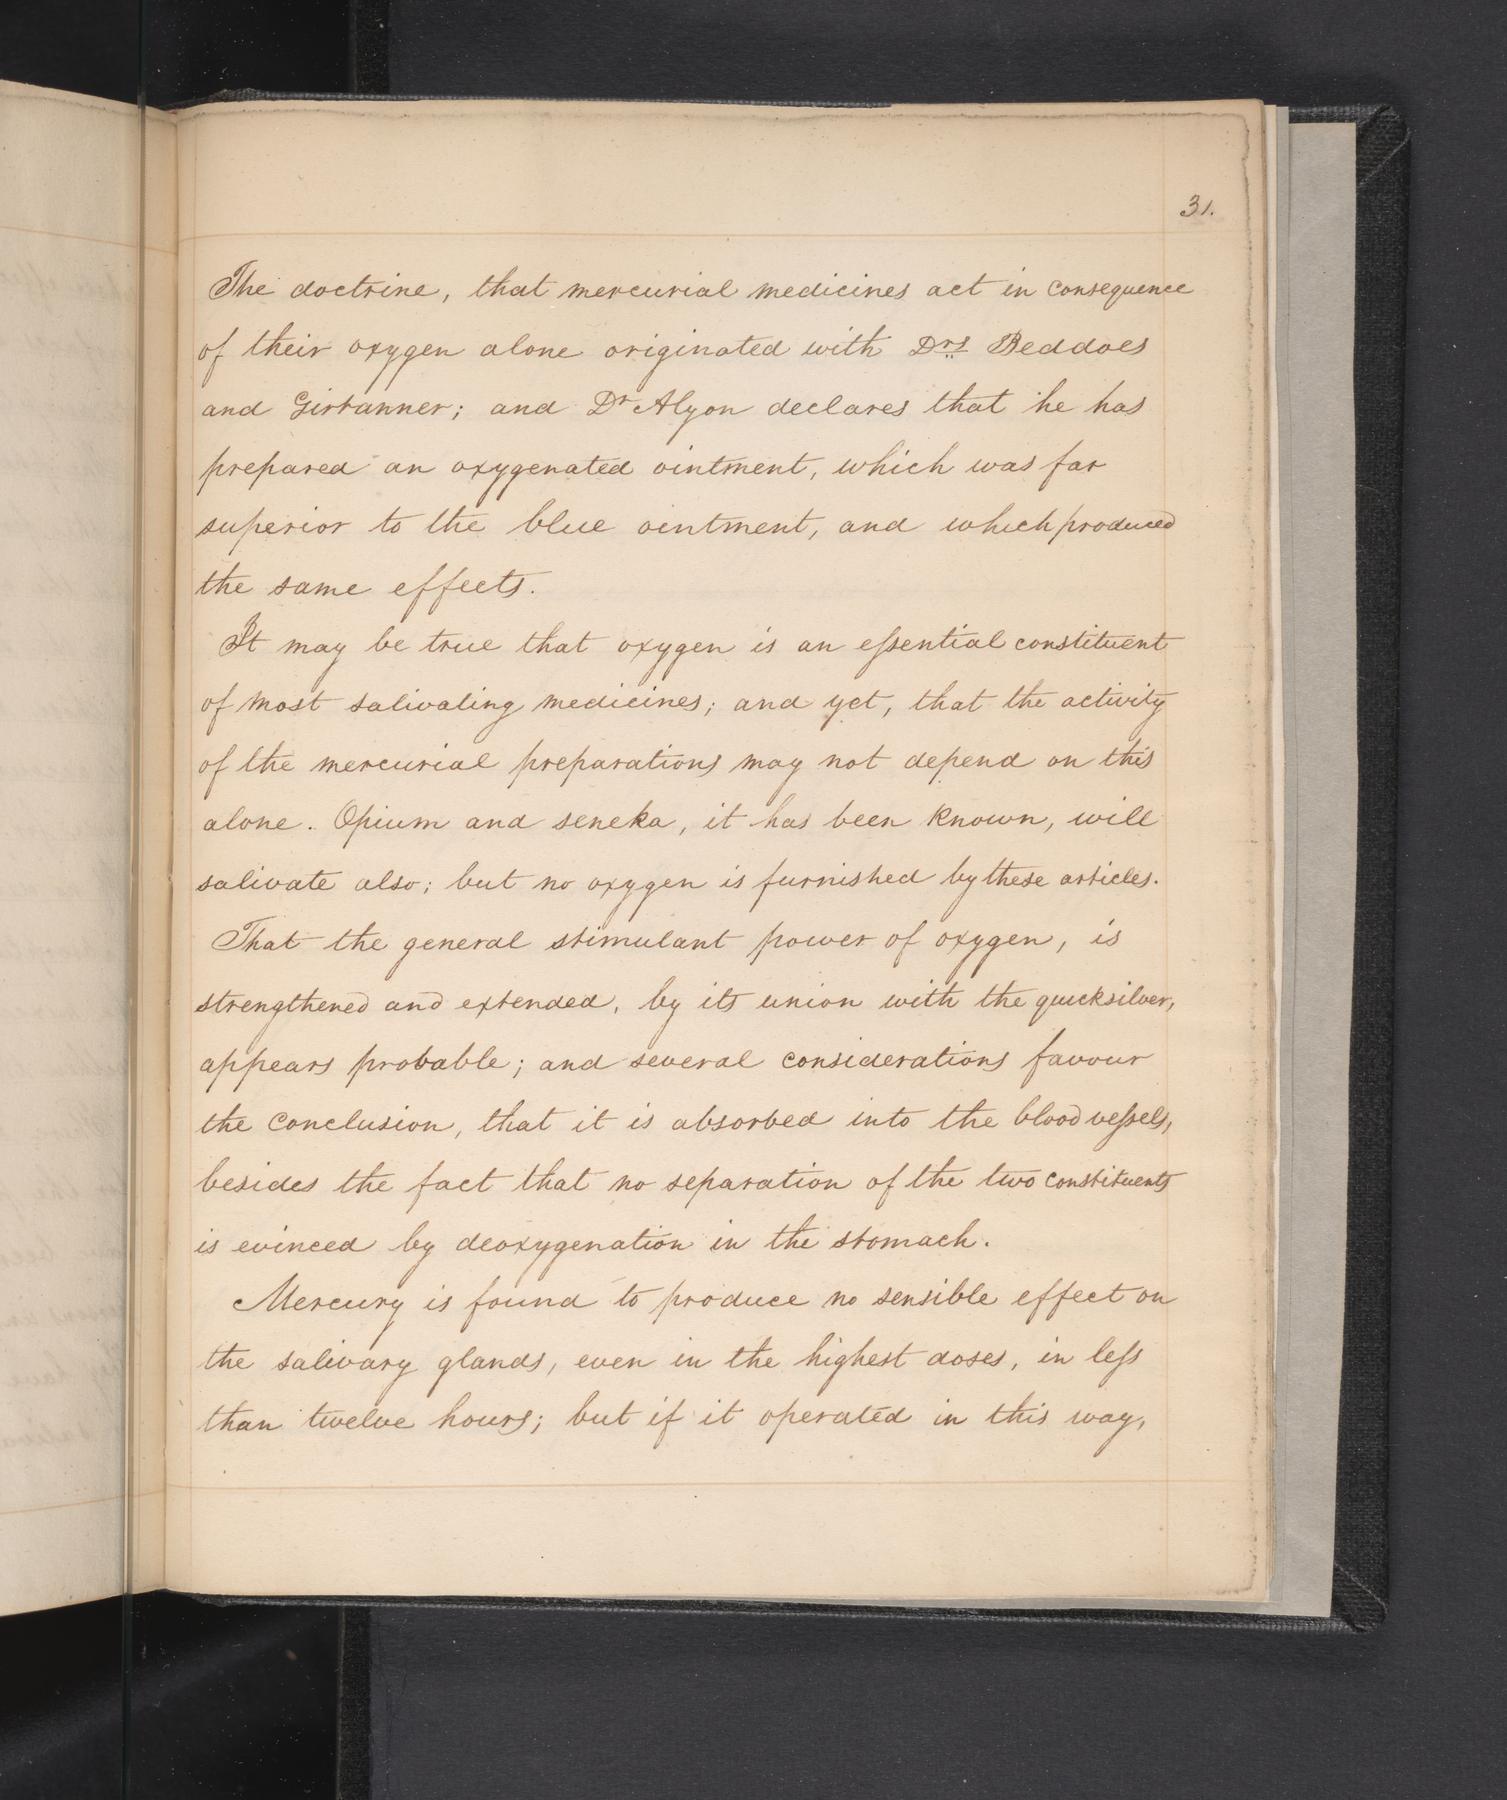 31.
The doctrine, that mercurial medicines act in consequence
of their oxygen alone originated with Drs Beddoes
and Girtanner; and Dr Alyon declares that he has
prepared an oxygenated ointment, which was far
superior to the blue ointment, and which produced
the same effects.
It may be true that oxygen is an eſsential constituent
of most salivating medicines; and yet, that the activity
of the mercurial preparations may not depend on this
alone. Opium and seneka, it has been known, will
salivate also; but no oxygen is furnished by these articles.
That the general stimulant power of oxygen, is
strengthened and extended, by its union with the quicksilver,
appears probable; and several considerations favour
the conclusion, that it is absorbed into the blood veſsels,
besides the fact that no separation of the two constituents
is evinced by deoxygenation in the stomach.
Mercury is found to produce no sensible effect on
the salivary glands, even in the highest doses, in leſs
than twelve hours; but if it operated in this way,